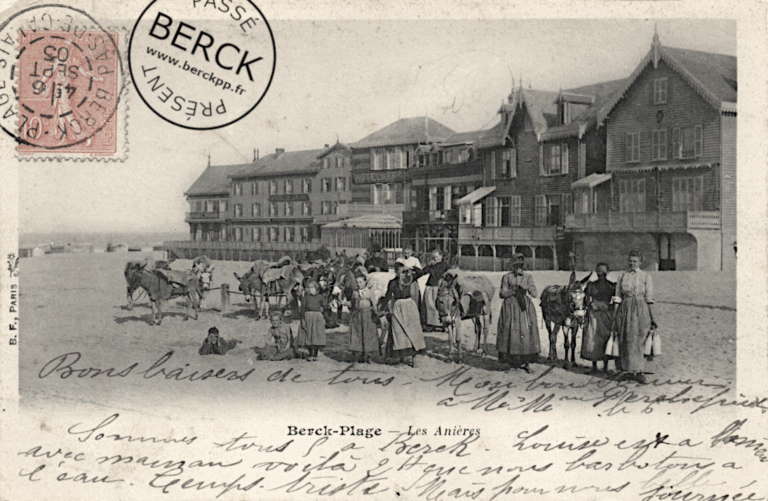 PASSÉ
BERCK
www.berckpp.fr
PRÉSENT
BERCK-PLAGE
PAS-DE-CALAIS
6
SEPT
05
B. F., PARIS
HOTEL
Bons baisers de tous. Mon bon souvenir
à
Berck-Plage — Les Anières
Sommes tous 5 à Berck. Louise est à
avec maman voilà 2 que nous barbotons à
l'eau. Temps triste Mais pour nous